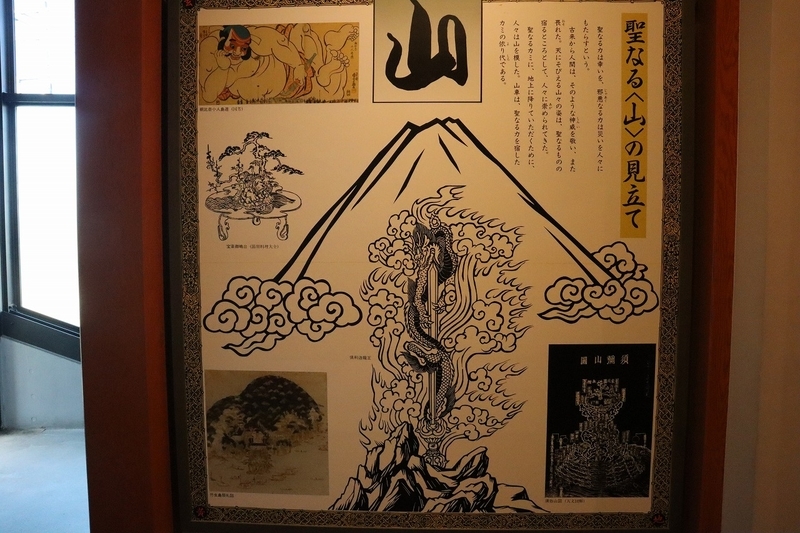 聖なる〈山〉の見立て
山
聖なる力は幸いを、邪悪なる力は災いを人々に
もたらすという。
古来から人間は、そのような神威を敬い、また
畏れた。天にそびえる山々の姿は、聖なるものの
宿るところとして、人々に崇められてきた。
聖なるカミに、地上に降りていただくために、
人々は山を模した。山車は、聖なる力を宿した
カミの依り代である。
須彌山圖